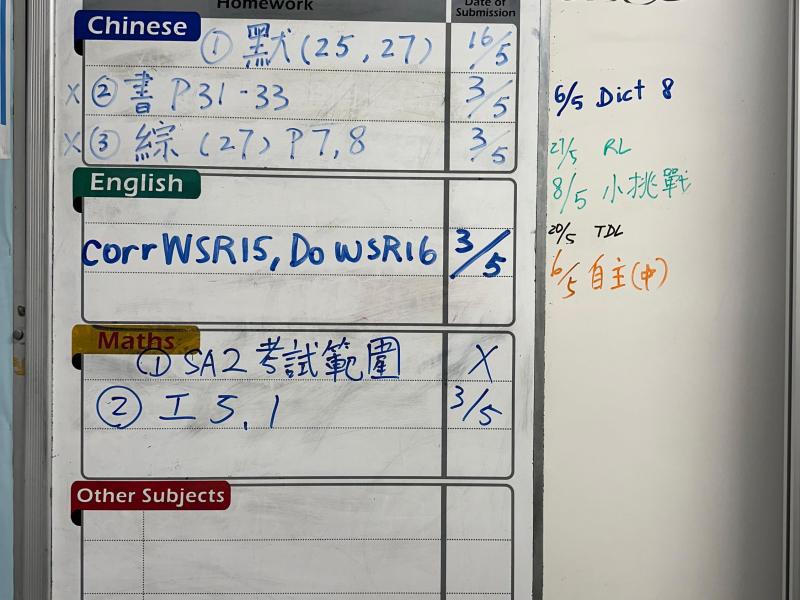 Homework Date of Submission
Chinese
① 默 (25, 27) 16/5
X ② 書 P31-33 3/5
X ③ 綜 (27) P7,8 3/5
English
corr WSR15, Do WSR16 3/5
Maths
① SA2 考試範圍 X
② 工 5.1 3/5
Other Subjects
6/5 Dict 8
27/5 RL
8/5 小挑戰
20/5 TDL
6/5 自主(中)